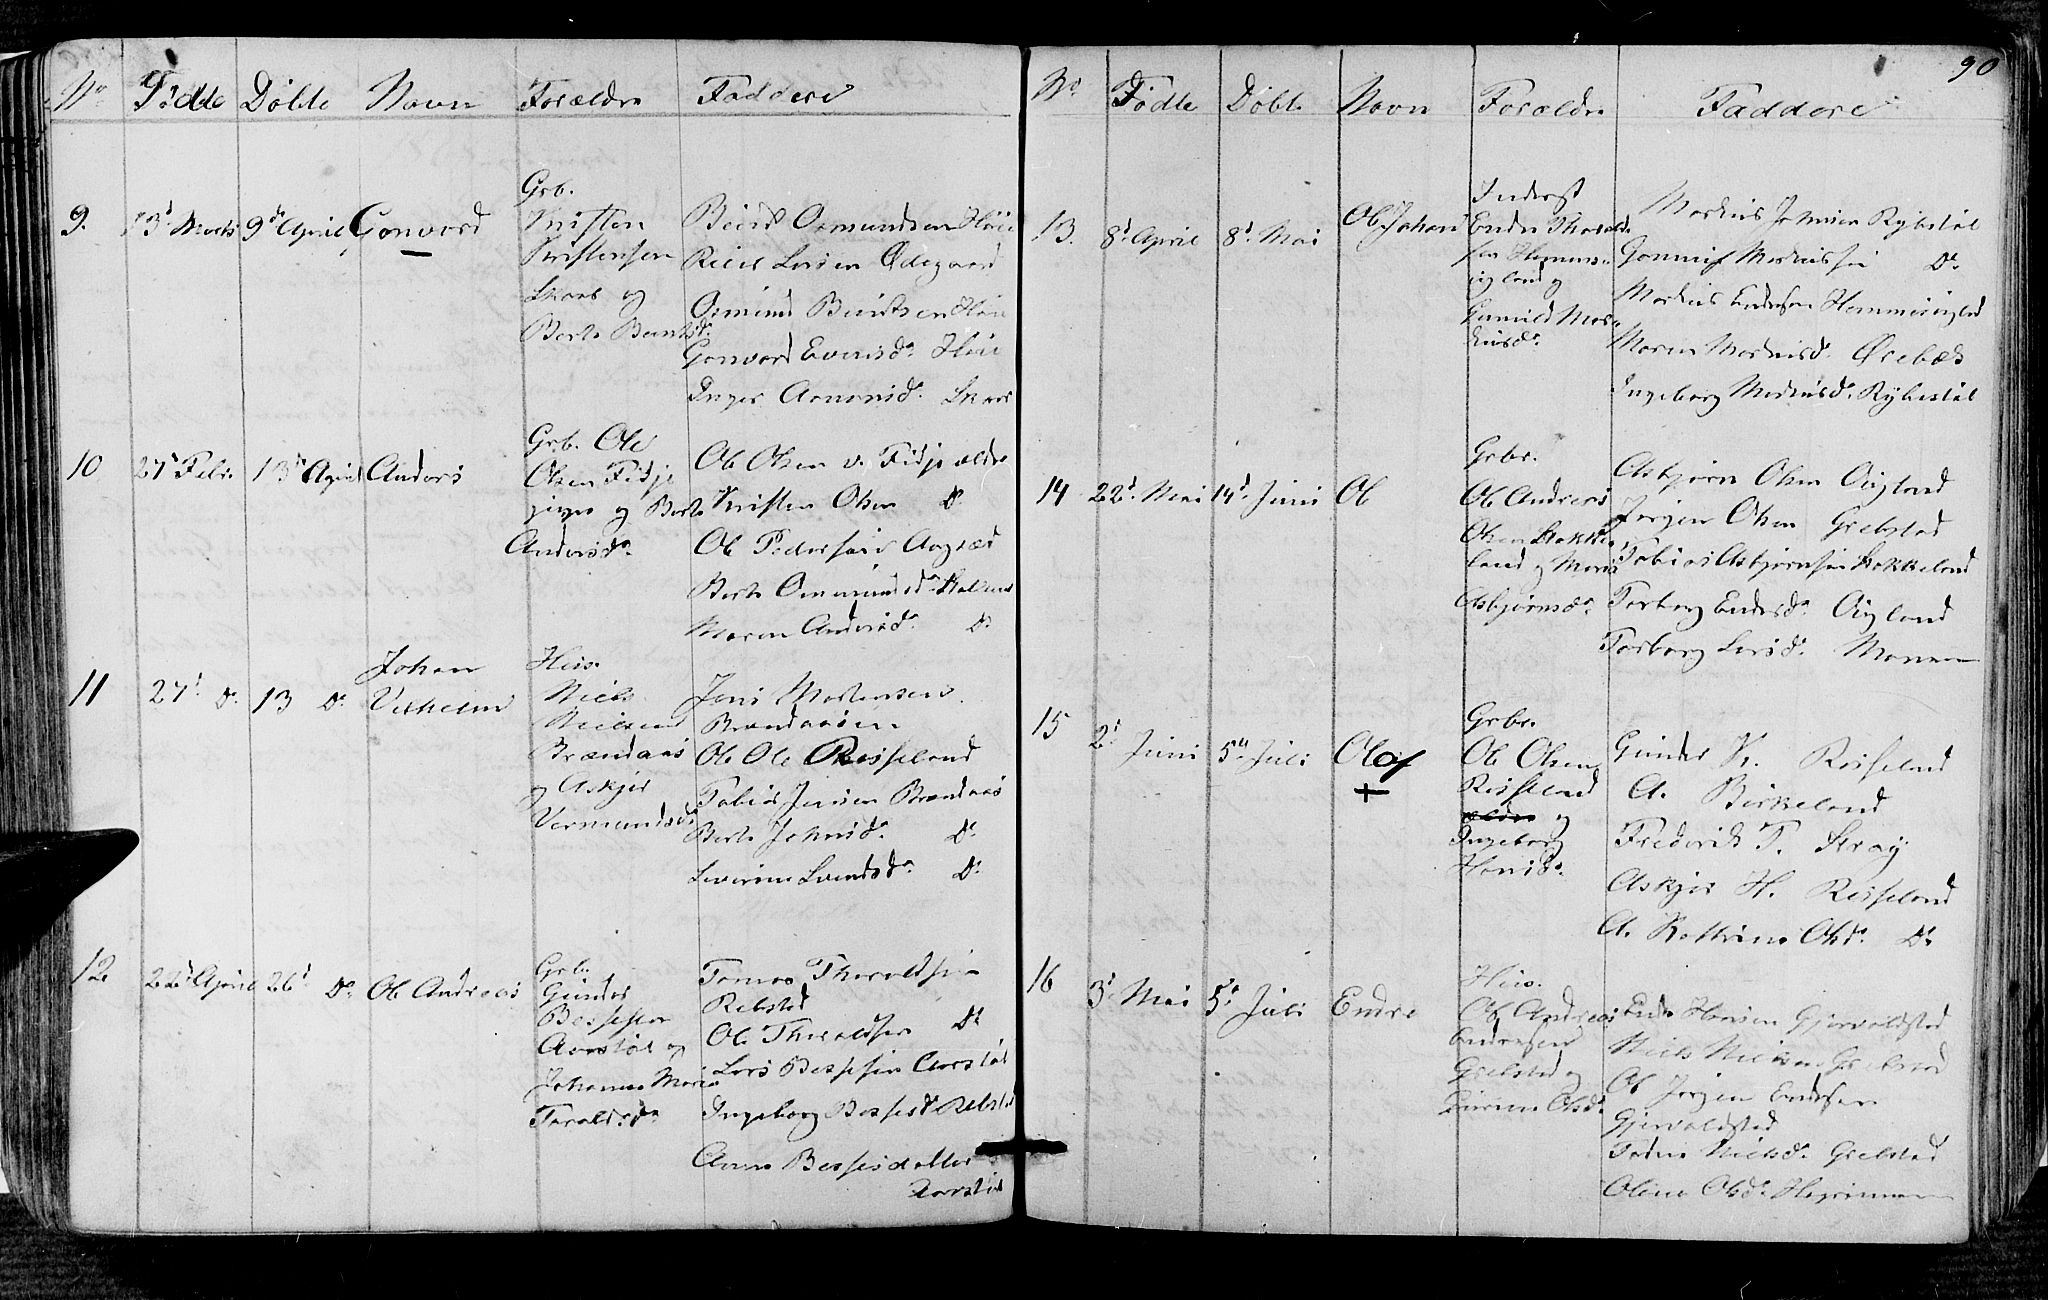 No Fødte Døbte Navn Forældre Faddere
9. 13d Marts 9de April Gonvord
Grb.
Kristen
Kristensen
Skaar og
Berte Berntsd.
Osmundsen Høie
Larsen Ødegaard
Osmund Berntsen Høie
Gonvord Evensda. Høie
Inger Aanonsd. Skaar
10 27d Febr. 13de April Anders
Grb. Ole
Olsen Fidje
og Berte
Andersda.
Ole Olsen v. Fidje ældre
Kristen Olsen Do
Ole Pedersen
Berte Ommundsda.
Maren Andersd. Do
11 27d Do. 13 Do. Johan
Vilhelm
Huus.
Niels
Nielsen
Brændaas
og Askjer
Vermundsd.
Jens Mortensen
Brændaasen
Ole Ols. Røisseland
Tobias Jensen Brændaas
Berte Johnsda. Do
Severine Svendsda. Do
12 22d April 26d Do. Ole Andreas
Grb.
Gunder
Bessesen
Aarstøl og
Johanne Marie
Taraldsda.
Tomas Tharaldsen
Rebsted
Ole Tharaldsen Do
Lars Bessesen Aarstøl
Ingeborg Bessesd. Rebsted
Anne Bessesdatter
Aarstøl
90
No Fødte Døbte Navn Forældre Faddere
13. 8d. April 8d. Mai Ole Johan
Inderst
Endre Tharald-
sen
og
Gunild Mar-
kusda.
Markus Johnsen Rybestøl
Markussen Do
Markus Endresen
Maren Markusd. Øvebæk
Ingeborg Markusda. Rybestøl
14 22d. Mai 14d. Juni Ole
Grbr.
Ole Andreas
Olsen Stokke-
land og Maren
Asbjørnsda.
Asbjørn Olsen Øigland
Jørgen Olsen Grebstad
Tobias Asbjørnsen Stokkeland
Torborg Endresda. Øigland
Torborg Larsd. Monen
15 2d Juni 5te Juli Olaf
+
Grbr.
Ole Olsen
Røisseland
ældre og
Ingeborg
Hansda.
Gunder K. Røisseland
A. Birkeland
Frederik T. Stray
Askjer H. Røisseland
A. Kathrine Olsda. Do
16 3d. Mai 5d. Juli Endre
Huus.
Ole Andreas
Endresen
Grebstad og
Olsda.
Endre Hansen Gjervoldstad
Niels Nielsen Grebstad
Ole Jørgen Endresen
Gjervoldstad
Nielsda. Grebstad
Oline Olsda.